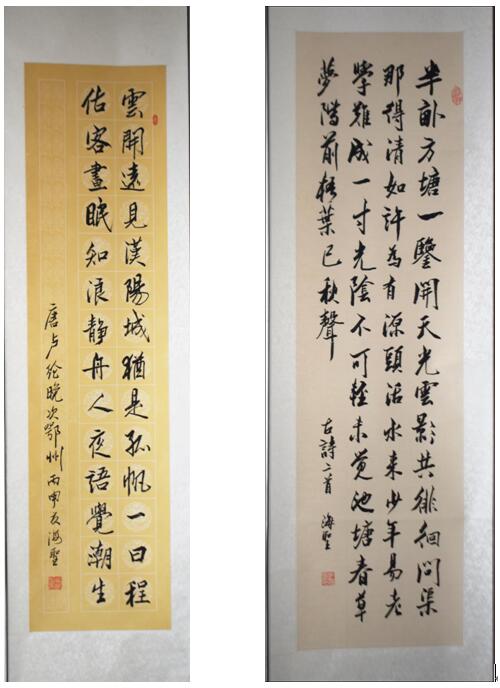 雲開遠見漢陽城猶是孤帆一日程
估客晝眠知浪静舟人夜語覺潮生
唐卢纶晚次鄂州 丙申夏海聖
半畝方塘一鑒開天光雲影共徘徊問渠
那得清如許為有源頭活水来少年易老
學難成一寸光陰不可輕未覺池塘春草
夢階前梧葉已秋聲
古詩二首 海聖